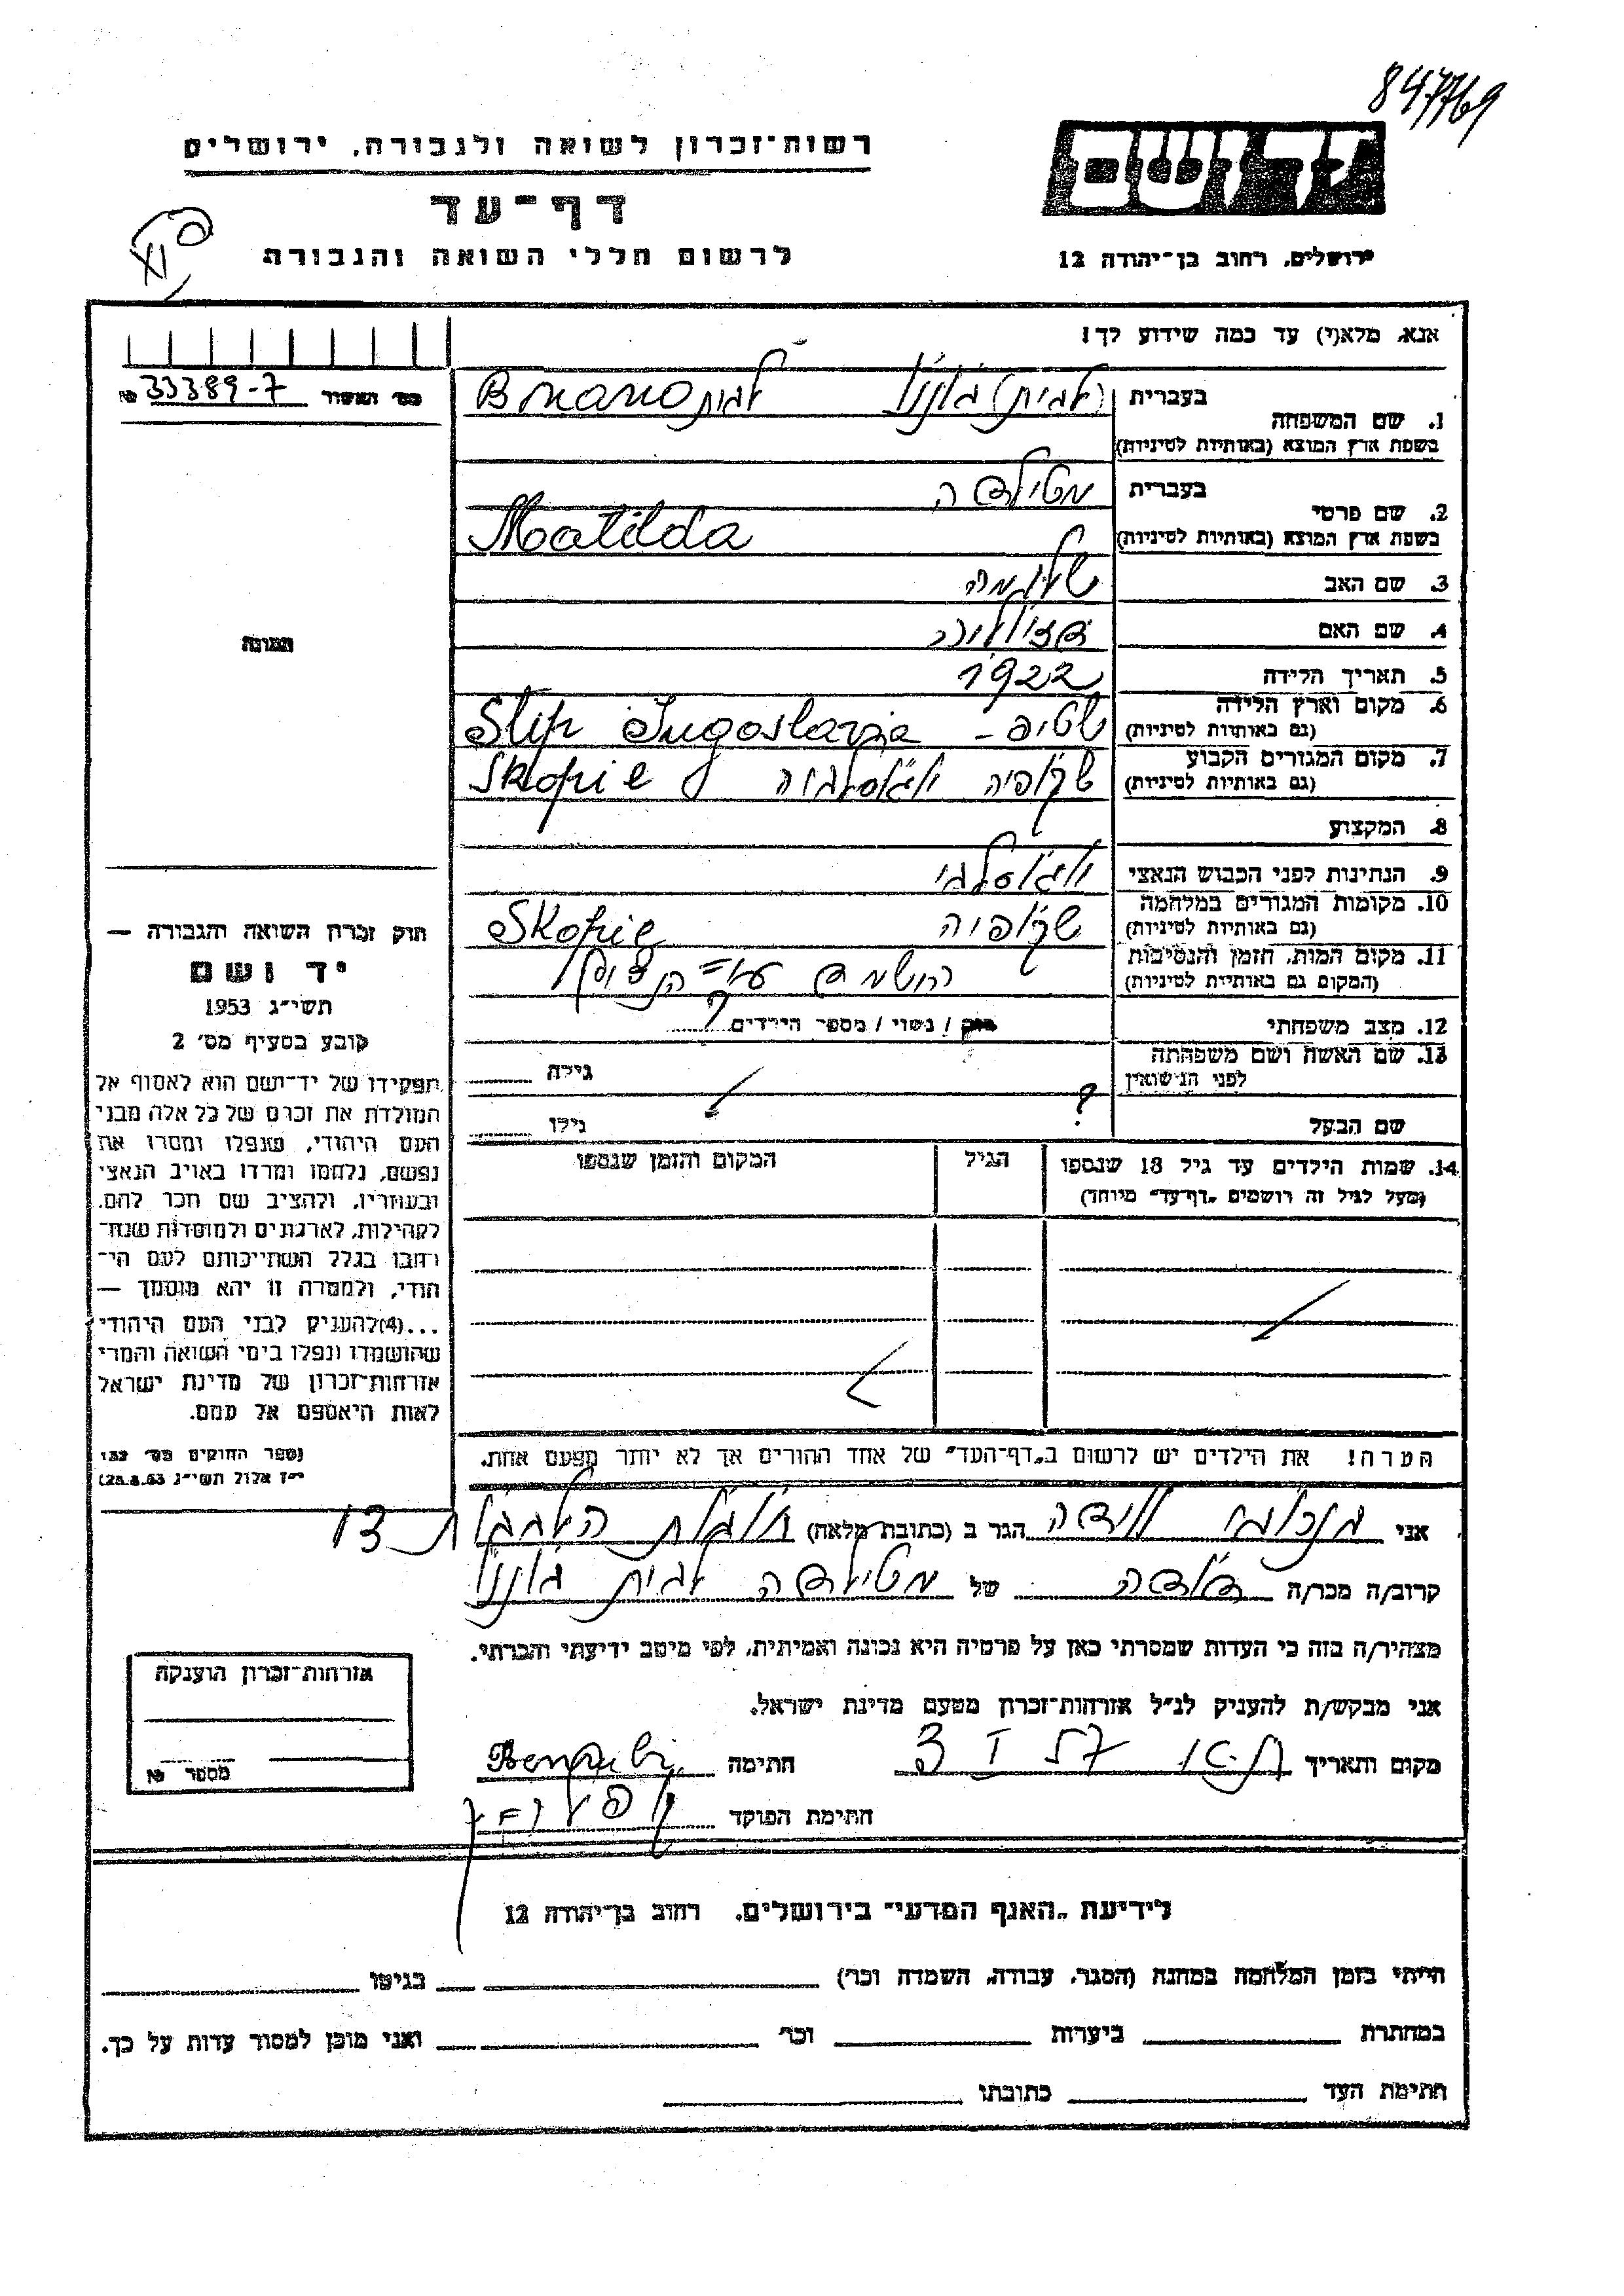 847769
רשות־זכרון לשואה ולגבורה, ירושלים
יד ושם
דף־עד
לרשום חללי השואה והגבורה
ירושלים, רחוב בן־יהודה 12
אנא, מלא(י) עד כמה שידוע לך!
מס׳ האשור 33389-7 №
1. שם המשפחה
בעברית
בשפת ארץ המוצא (באותיות לטיניות)
2. שם פרטי
בעברית מטילדה
בשפת ארץ המוצא (באותיות לטיניות) Matilda
3. שם האב
4. שם האם
5. תאריך הלידה 1922
6. מקום וארץ הלידה שטיפ - Stip Jugoslavia
(גם באותיות לטיניות)
7. מקום המגורים הקבוע סקופיה יוגוסלביה Skopie
(גם באותיות לטיניות)
8. המקצוע
9. הנתינות לפני הכבוש הנאצי יוגוסלבי
10. מקומות המגורים במלחמה סקופיה Skopie
(גם באותיות לטיניות)
11. מקום המות, הזמן והנסיבות הושמד ע״י הנאצים
(המקום גם באותיות לטיניות)
12. מצב משפחתי רוק / נשוי / מספר הילדים ?
13. שם האשה ושם משפחתה
לפני הנישואין גילה
שם הבעל ? גילו
14. שמות הילדים עד גיל 18 שנספו
(מעל לגיל זה רושמים „דף־עד״ מיוחד)
הגיל
המקום והזמן שנספו
הערה! את הילדים יש לרשום ב„דף־העד״ של אחד ההורים אך לא יותר מפעם אחת.
תמונה
חוק זכרון השואה והגבורה —
יד ושם
תשי״ג 1953
קובע בסעיף מס׳ 2
תפקידו של יד־ושם הוא לאסוף אל
המולדת את זכרם של כל אלה מבני
העם היהודי, שנפלו ומסרו את
נפשם, נלחמו ומרדו באויב הנאצי
ובעוזריו, ולהציב שם וזכר להם,
לקהילות, לארגונים ולמוסדות שנח־
רבו בגלל השתייכותם לעם הי־
הודי, ולמטרה זו יהא מוסמך —
...(4)להעניק לבני העם היהודי
שהושמדו ונפלו בימי השואה והמרי
אזרחות־זכרון של מדינת ישראל
לאות היאספם אל עמם.
(ספר החוקים מס׳ 132
י״ז אלול תשי״ג 28.8.53)
אני הגר ב (כתובת מלאה) 13
קרוב/ה מכר/ה דודה של מטילדה
מצהיר/ה בזה כי העדות שמסרתי כאן על פרטיה היא נכונה ואמיתית, לפי מיטב ידיעתי והכרתי.
אני מבקש/ת להעניק לנ״ל אזרחות־זכרון מטעם מדינת ישראל.
מקום ותאריך 3 I 57 חתימה
חתימת הפוקד
אזרחות־זכרון הוענקה
מספר №
לידיעת „האגף המדעי״ בירושלים, רחוב בן־יהודה 12
הייתי בזמן המלחמה במחנה (הסגר, עבודה, השמדה וכו׳) בגיטו
במחתרת ביערות וכו׳ ואני מוכן למסור עדות על כך.
חתימת העד כתובתו